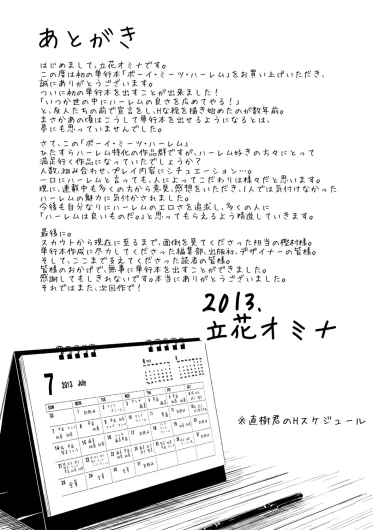 あとがき
はじめまして、立花オミナです。
この度は初の単行本「ボーイ・ミーツ・ハーレム」をお買い上げいただき、
誠にありがとうございます。
ついに初の単行本を出すことが出来ました！
「いつか世の中にハーレムの良さを広めてやる！」
と、友人たちの前で宣言をし、H な絵を描き始めたのが数年前。
まさかあの頃はこうして単行本を出せるようになるとは、
夢にも思っていませんでした。
さて、この「ボーイ・ミーツ・ハーレム」
ひたすらハーレム特化の作品群ですが、ハーレム好きの方々にとって
満足行く作品になっていたでしょうか？
人数、組み合わせ、プレイ内容にシチュエーション…。
一口にハーレムと言っても、人によってこだわりは様々だと思います。
現に、連載中も多くの方から意見、感想をいただき、1人では気付けなかった
ハーレムの魅力に気付かされました。
今後も自分なりにハーレムのエロさを追求し、多くの人に
「ハーレムは良いものだ。」と思ってもらえるよう精進していきます。
最後に。
スカウトから現在に至るまで、面倒を見てくださった担当の樫村様。
単行本作成に尽力してくださった編集部、出版社、デザイナーの皆様。
そして、ここまで支えてくださった読者の皆様。
皆様のおかげで、無事に単行本を出すことができました。
感謝してもしきれないです。本当にありがとうございました。
それではまた、次回作で！
2013.
立花オミナ
7 2013 July
SUN MON TUE WED THU FRI SAT
※直樹君のHスケジュール